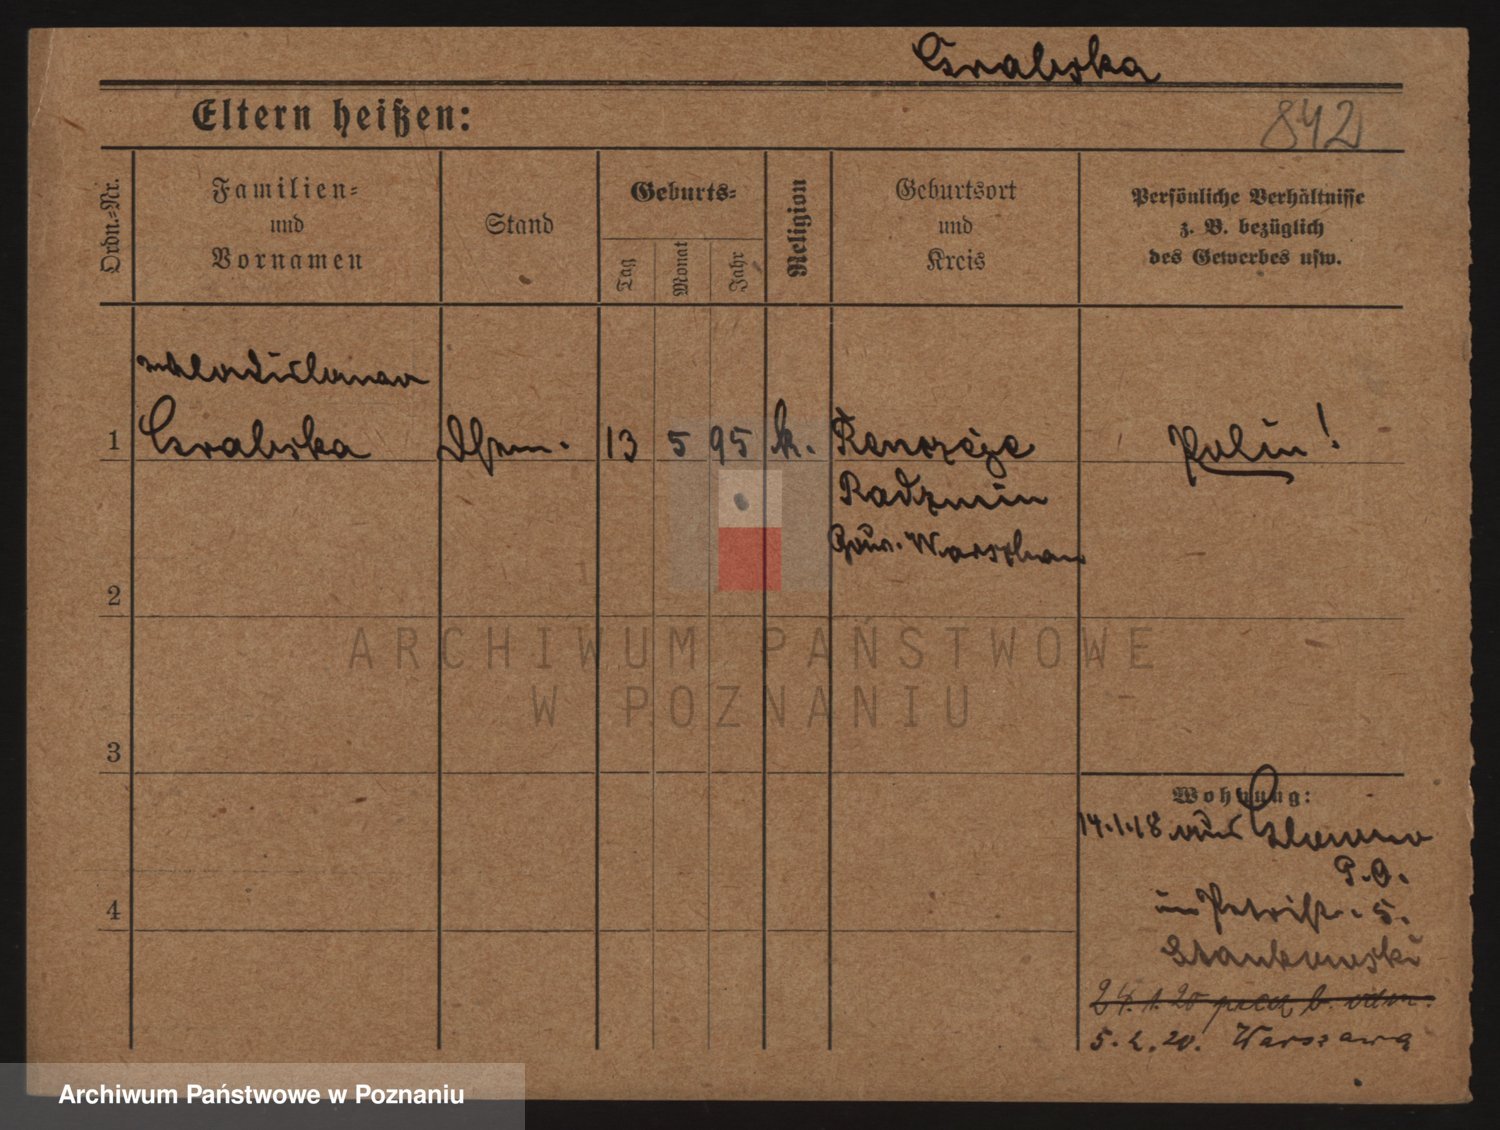 Grabska
Eltern heißen:
842
Ordn.-Nr.
Familien-
und
Vornamen
Stand
Geburts-
Tag
Monat
Jahr
Religion
Geburtsort
und
Kreis
Persönliche Verhältnisse
z. B. bezüglich
des Gewerbes usw.
Wladislawa
1 Grabska 13 5 95 k. Polin!
Radzmin
Gouv. Warschau
2
ARCHIWUM PAŃSTWOWE
W POZNANIU
3
Wohnung:
14.1.18 aus
P.O.
4
5.
Stankowski
24.1.20
5.2.20. Warszawa
Archiwum Państwowe w Poznaniu